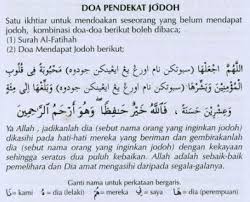 DOA PENDEKAT JODOH
Satu ikhtiar untuk mendoakan seseorang yang belum mendapat
jodoh, kombinasi doa-doa berikut boleh dibaca;
(1) Surah Al-Fatihah
(2) Doa Mendapat Jodoh berikut;
اَللّٰهُمَّ اجْعَلْهَا (سبوتكن نام اورڠ يڠ ايڠينكن جودوه) مَحْبُوْبَةً فِي قُلُوْبِ
(سبوتكن نام اورڠ يڠ ايڠينكن جودوه)
وَعِشْرِيْنَ حَسَنَةً، فَاللهُ خَيْرٌ حَفِظًا وَهُوَ أَرْحَمُ الرَّاحِمِيْنَ
Ya Allah, jadikanlah dia (sebut nama orang yang inginkan jodoh)
dikasihi pada hati-hati mereka yang beriman dan gembirakanlah
dia (sebut nama orang yang inginkan jodoh) dengan kekayaan
sehingga seratus dua puluh kebaikan. Allah adalah sebaik-baik
pemelihara dan Dia amat mengasihi daripada segala-galanya.
Ganti nama untuk perkataan bergaris.
نَا = kami ـهُ = dia (lelaki) هُمْ = mereka ي = saya هَا = dia (perempuan)